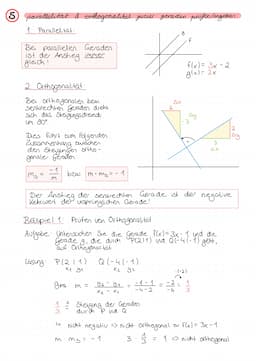 5 Parallelität & Orthogonalität zweier Geraden prüfen/angeben
1. Parallelität:
Bei parallelen Geraden
ist der Anstieg immer
gleich!
f(x) = 3x - 2
g(x) = 3x
2. Orthogonalität:
Bei orthogonalen bzw.
senkrechten Geraden dreht
sich das Steigungsdreieck
um 90°
Dies führt zum folgenden
Zusammenhang zwischen
den Steigungen ortho-
gonaler Geraden
bzw. m · m₂ = -1
Der Anstieg der senkrechten Geraden ist der negative
Kehrwert der ursprünglichen Gerade!
Beispiel 1: Prüfen von Orthogonalität
Aufgabe: Untersuchen Sie die Gerade f(x)=3x-1 und die
Gerade g, die durch P(2|1) und Q(-4|-1) geht,
auf Orthogonalität.
Lösung: P(2|1) Q(-4|-1)
x₁ y₁ x₂ y₂
Bsp. m = y₂-y₁/x₂-x₁ = -1-1/-4-2 = -2/-6 = 1/3
1/3 ≙ Steigung der Geraden
durch P und Q
↳ nicht negativ ⇒ nicht orthogonal zu f(x) = 3x-1
3 · 1/3 = 1 (Nicht -1)